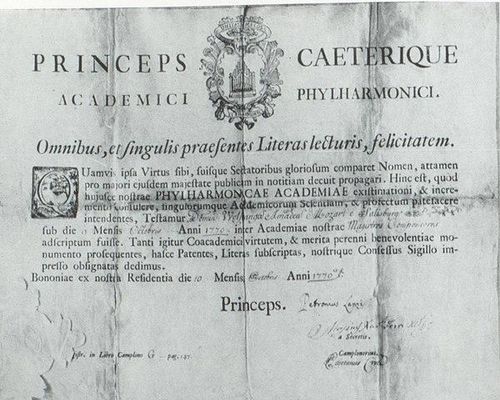 PRINCEPS CAETERIQUE
ACADEMICI PHYLHARMONICI.
Omnibus, et singulis praesentes Literas lecturis, felicitatem.
QUamvis ipsa Virtus sibi, suisque Sectatoribus gloriosum comparet Nomen, attamen
pro majori ejusdem majestate publicam in notitiam decuit propagari. Hinc est, quod
hujusce nostrae PHYLHARMONICAE ACADEMIAE existimationi, & incre-
mento consulere, singulorumque Academicorum Scientiam, & profectum patefacere
intendentes, Testamur Wolfgangum Amadeum Mozart e Salisburgo
sub die 9 Mensis Octobris Anni 1770 inter Academiae nostrae Magistros Compositores
adscriptum fuisse. Tanti igitur Coacademici virtutem, & merita perenni benevolentiae mo-
numento prosequentes, hasce Patentes, Literas subscriptas, nostrique Consessus Sigillo im-
presso obsignatas dedimus.
Bononiae ex nostra Residentia die 10 Mensis Octobris Anni 1770
Princeps. Petronius Lanzi
a Secretis.
in Libro Campione G pag. 147
Campionerius.